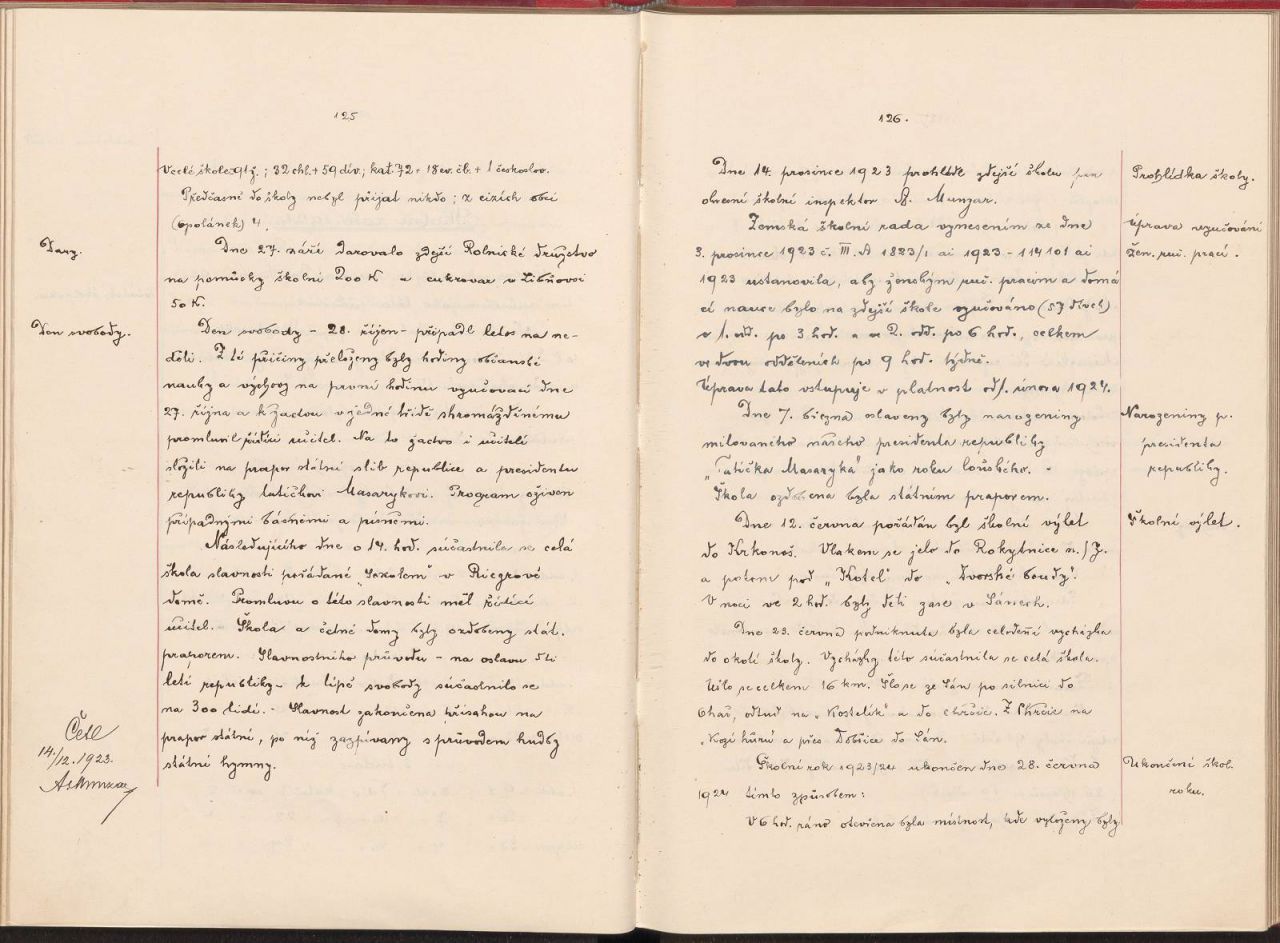 125
V celé škole 91 ž.; 32 chl. + 59 dív.; kat. 72 + 18 ev. čb. + 1 českoslov.
Předčasně do školy nebyl přijat nikdo; z cizích obcí
(Opolánek) 4.
Dary.
Dne 27. září darovalo zdejší Rolnické družstvo
na pomůcky školní 200 K a cukrovar v Libňovsi
50 K.
Den svobody.
Den svobody - 28. říjen - připadl letos na ne-
děli. Z té příčiny přeloženy byly hodiny občanské
nauky a výchovy na první hodinu vyučovací dne
27. října a k žactvu v jedné třídě shromážděnému
promluvil řídící učitel. Na to žactvo i učitelé
složili na prapor státní slib republice a presidentu
republiky tatíčkovi Masarykovi. Program oživen
případnými básněmi a písněmi.
Následujícího dne o 14. hod. súčastnila se celá
škola slavnosti pořádané „Sokolem" v Riegrově
domě. Promluvu o této slavnosti měl řídící
učitel. Škola a četné domy byly ozdobeny stát.
praporem. Slavnostního průvodu - na oslavu 5ti
letí republiky - k lípě svobody súčastnilo se
na 300 lidí. - Slavnost zakončena přísahou na
prapor státní, po níž zazpívany s průvodem hudby
státní hymny.
Četl
14/12. 1923.
126.
Dne 14. prosince 1923 prohlédl zdejší školu pan
Prohlídka školy.
okresní školní inspektor A. Munzar.
Zemská školní rada vynesením ze dne
Úprava vyučování
3. prosince 1923 č. III. A 1823/1 ai 1923 - 114101 ai
žen. ruč. prací.
1923 ustanovila, aby ženským ruč. pracím a domá
cí nauce bylo na zdejší škole vyučováno (57 dívek)
v 1. odd. po 3 hod. a ve 2. odd. po 6 hod., celkem
ve dvou odděleních po 9 hod. týdně.
Úprava tato vstupuje v platnost od 1. února 1924.
Dne 7. března oslaveny byly narozeniny
Narozeniny p.
milovaného našeho presidenta republiky
presidenta
„Tatíčka Masaryka" jako roku loňského. -
republiky.
Škola ozdobena byla státním praporem.
Dne 12. června pořádán byl školní výlet
Školní výlet.
do Krkonoš. Vlakem se jelo do Rokytnice n./J.
a potom pod „Kotel" do „Dvorské boudy".
V noci ve 2 hod. byly děti zase v Sánech.
Dne 23. června podniknuta byla celodení vycházka
do okolí školy. Vycházky této súčastnila se celá škola.
Ušlo se celkem 16 km. Šlo se ze Sán po silnici do
Ohař, odtud na „Kostelík" a do Chrčic. Z Chrčic na
„Kozí hůru" a přes Dobšice do Sán.
Školní rok 1923/24 ukončen dne 28. června
Ukončení škol.
1924 tímto způsobem:
roku.
V 6 hod. ráno otevřena byla místnost, kde vyloženy byly